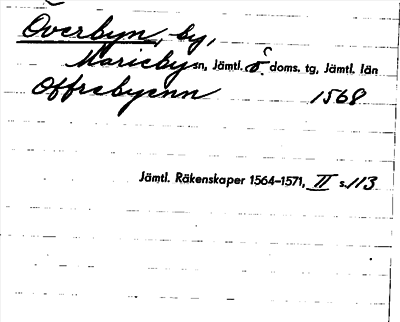 Överbyn, by,
Marieby sn, Jämtl. ö. doms. tg, Jämtl. län
Offrebyenn 1568
Jämtl. Räkenskaper 1564–1571, II s. 113